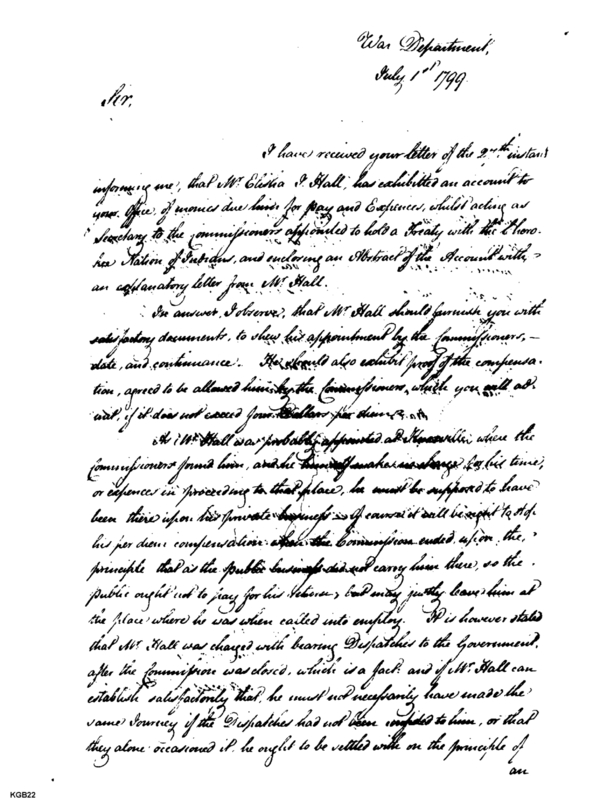 War Department,
July 1st 1799
Sir,
I have received your letter of the 27th instant
informing me, that Mr. Elisha I. Hall, has exhibited an account to
your Office, of monies due him for pay and Expences, whilst acting as
Secretary to the Commissioners appointed to hold a Treaty with the Chero
kee Nation of Indians, and enclosing an Abstract of the Account with,
an explanatory letter from Mr. Hall.
In answer, I observe, that Mr. Hall should furnish you with
satisfactory documents, to shew his appointment by the Commissioners,
date, and continuance. He should also exhibit proof of the compensa-
tion, agreed to be allowed him by the Commissioners, which you will ad-
mit, if it does not exceed four Dollars per diem.
As Mr. Hall was probably appointed at Knoxville, where the
Commissioners found him, and he himself makes no charge for his time,
or expences in proceeding to that place, he must be supposed to have
been there upon his private business. Of course it will be right to stop
his per diem compensation when the Commission ended, upon the
principle that as the public business did not carry him there, so the
public ought not to pay for his return, but may justly leave him at
the place where he was when called into employ. It is however stated
that Mr. Hall was charged with bearing Dispatches to the Government,
after the Commission was closed, which is a fact, and if Mr. Hall can
establish satisfactorily that, he must not necessarily have made the
same Journey if the Dispatches had not been confided to him, or that
they alone occasioned it he ought to be settled with on the principle of
an
KGB22